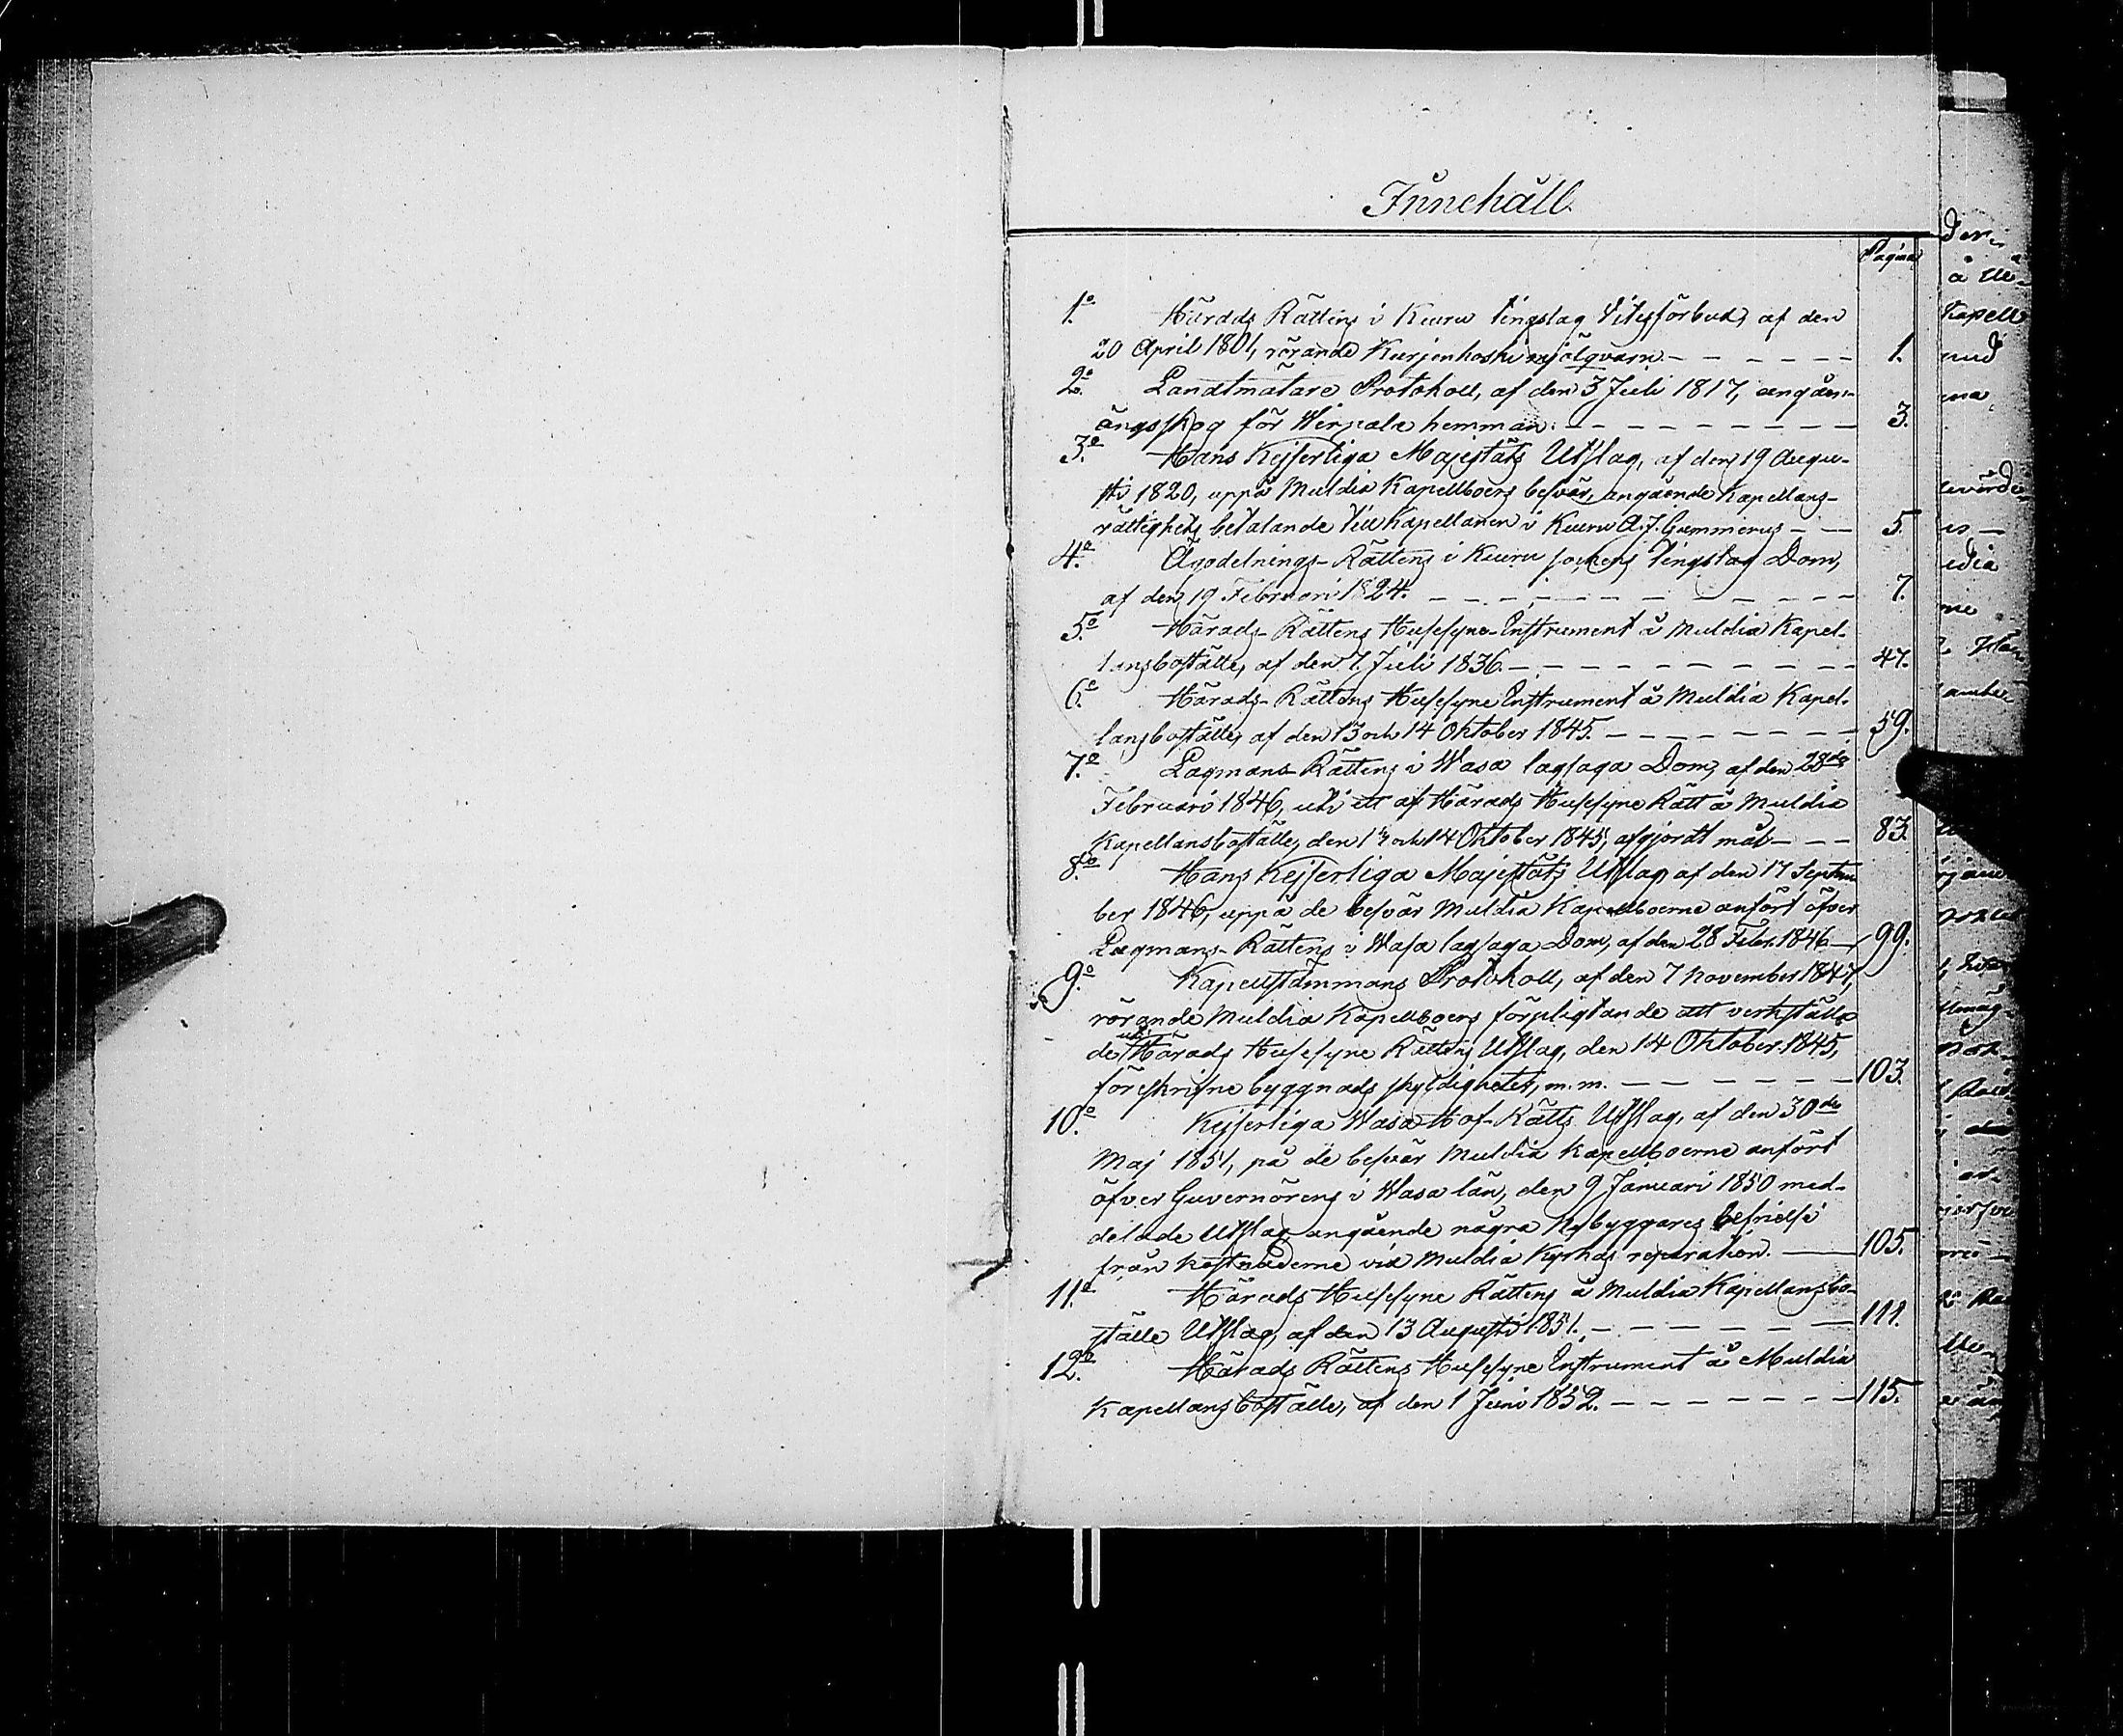 Innehåll
Pagina
1.o Härads Rättens i Keuru tingslag Vitesförbud, af den
20 April 1801, rörande Kurjenkoski mjölqvarn. – – – – – – 1.
2.o Landtmätare Protokoll, af den 3 Juli 1817, angåen-
ängsskog för Wirpala hemman. – – – – – – – – 3.
3.o Hans Kejserliga Majestäts Utslag, af den 19 Augu-
sti 1820, uppå Muldia Kapellboers besvär, angående Kapellans-
rättighets betalande till Kapellanen i Keuru A. J. Gummerus – – 5.
4.o Ägodelnings-Rättens i Keuru sockens tingslag Dom,
af den 19 Februari 1824. – – – – – – – – – – 7.
5.o Härads-Rättens Husesyne-Instrument å Muldia Kapel-
lansboställe, af den 7 Juli 1836. – – – – – – – – – 47.
6.o Härads-Rättens Husesyne Instrument å Muldia Kapel-
lansboställe, af den 13 och 14 Oktober 1845. – – – – – – – 59.
7.o Lagmans-Rättens i Wasa lagsaga Dom, af den 28de
Februari 1846, uti ett af Härads Husesyne Rätt å Muldia
Kapellansboställe, den 13 och 14 Oktober 1845, afgjordt mål – – – 83.
8.o Hans Kejserliga Majestäts Utslag af den 17 Septem
ber 1846, uppå de besvär Muldia Kapellboerne anfört öfver
Lagmans-Rättens i Wasa lagsaga Dom, af den 28 Febr. 1846 – 99.
9.o Kapellstämmans Protokoll, af den 7 November 1847,
rörande Muldia Kapellboers förpligtande att verkställa
de uti Härads Husesyne Rättens Utslag, den 14 Oktober 1845,
föreskrifne byggnads skyldigheter, m. m. – – – – – – 103.
10.o Kejserliga Wasa Hof-Rätts Utslag, af den 30de
Maj 1851, på de besvär Muldia Kapellboerne anfört
öfver Guvernörens i Wasa län, den 9 Januari 1850 med-
delade Utslag angående några Nybyggares befrielse
från kostnaderne vid Muldia Kyrkas reparation. – 105.
11.o Härads Husesyne Rättens å Muldia Kapellansbo-
ställe Utslag, af den 13 Augusti 1851. – – – – – – 111.
12.o Härads Rättens Husesyne Instrument å Muldia
Kapellansboställe, af den 1 Juni 1852. – – – – – – – 115.